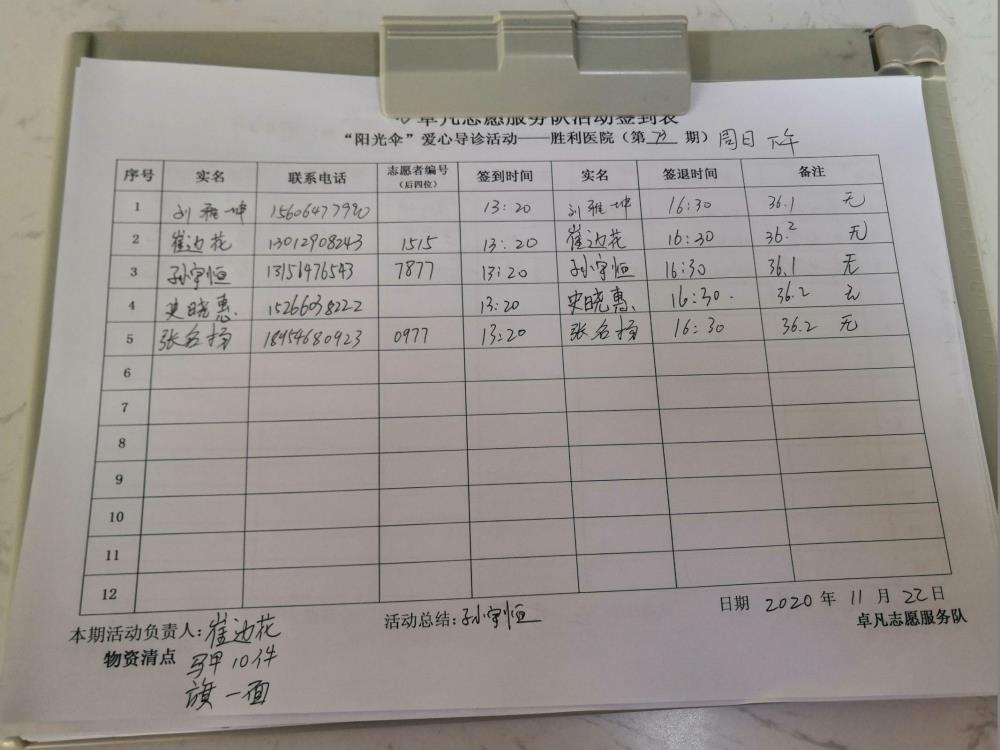 卓凡志愿服务队活动签到表
“阳光伞”爱心导诊活动——胜利医院（第 73 期）周日 下午
序号 实名 联系电话 志愿者编号（后四位） 签到时间 实名 签退时间 备注
1 刘雅坤 15606477990 13:20 刘雅坤 16:30 36.1 无
2 崔边花 13012908243 1515 13:20 崔边花 16:30 36.2 无
3 孙宇恒 13156476543 7877 13:20 孙宇恒 16:30 36.1 无
4 史晓惠 15266038222 13:20 史晓惠 16:30. 36.2 无
5 张名扬 18954680923 0977 13:20 张名扬 16:30 36.2 无
6
7
8
9
10
11
12
日期 2020 年 11 月 22 日
本期活动负责人:崔边花 活动总结:孙宇恒 卓凡志愿服务队
物资清点 马甲 10件
旗 一面